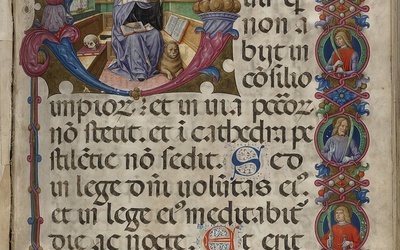 non a
bijt in
cōsilio
impior; et in uia peccor
nō stetit. et ī cathedra pe
stilētie nō sedit. Sed
in lege dn̄i uolūtas eiꝰ.
et in lege eiꝰ meditabit᷑
die ac nocte. Et erit